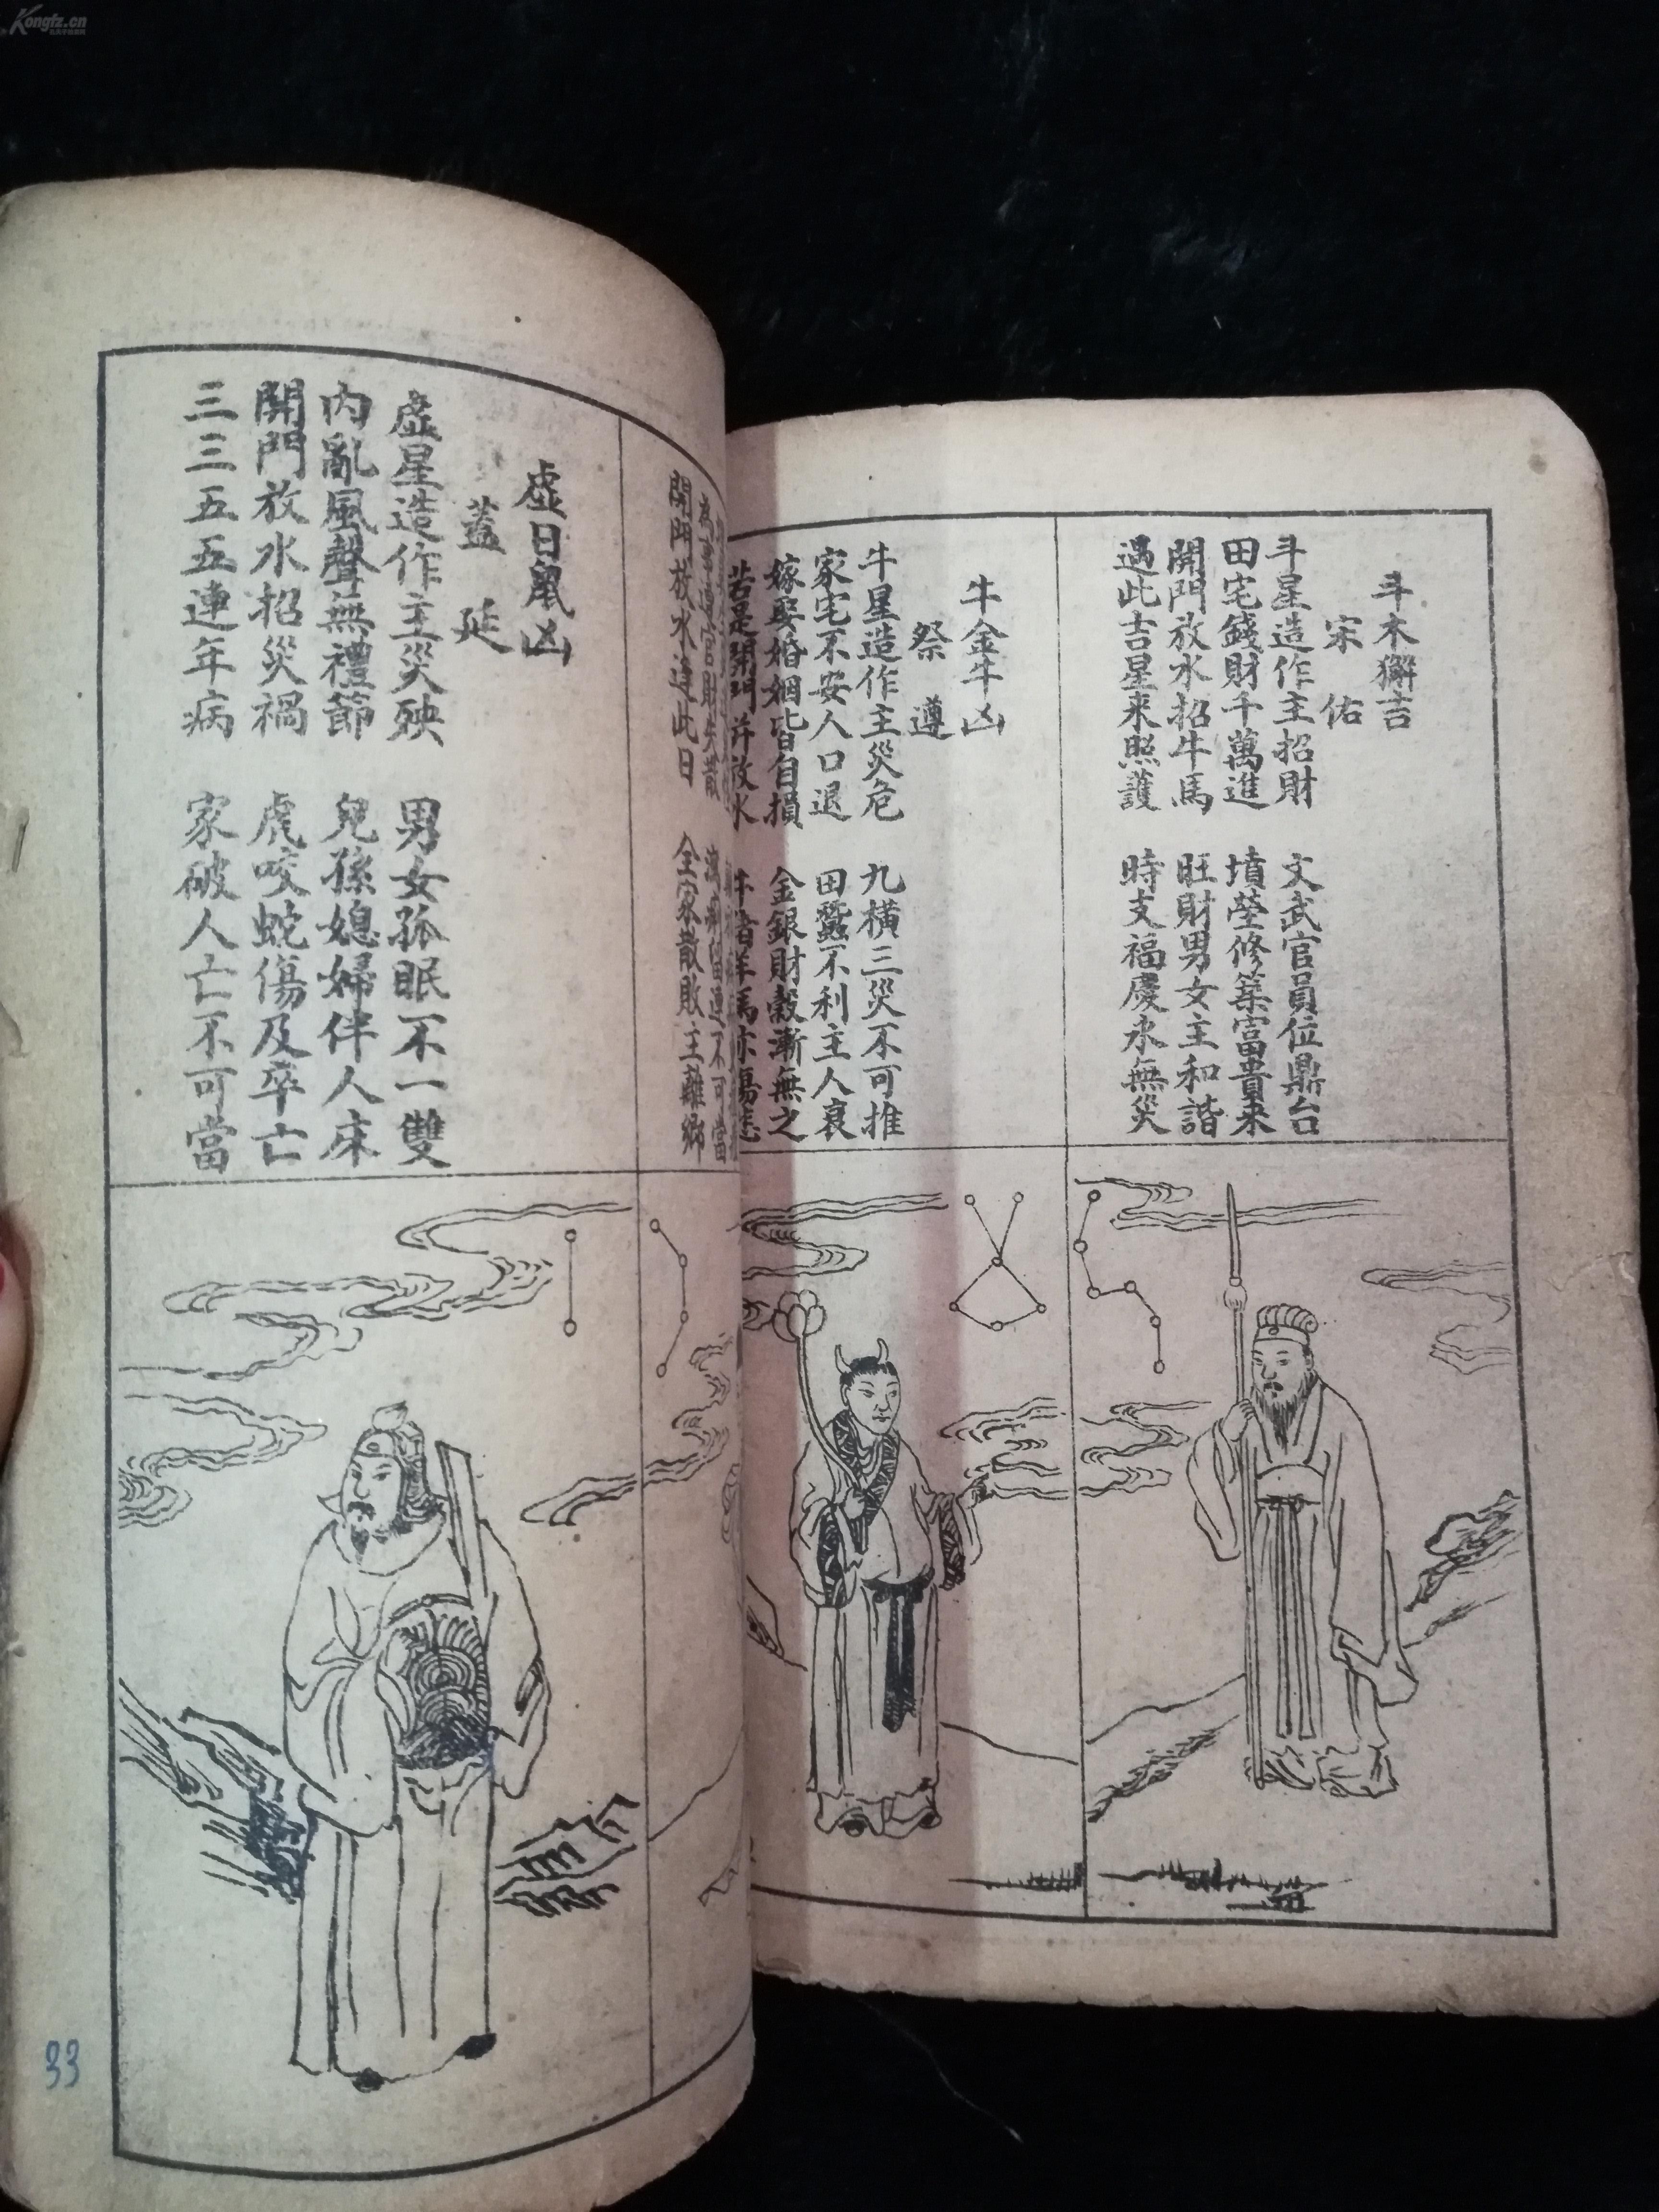 斗木獬吉
宋佑
斗星造作主招財 文武官員位鼎台
田宅錢財千萬進 墳塋修築富貴來
開門放水招牛馬 旺財男女主和諧
遇此吉星來照護 時支福慶永無災
牛金牛凶
祭遵
牛星造作主災危 九橫三災不可推
家宅不安人口退 田蠶不利主人衰
嫁娶婚姻皆自損 金銀財穀漸無之
若是開門并放水 牛猪羊馬亦傷悲
為事遭官財失散 瀉痢留連不可當
開門放水逢此日 全家散敗主離鄉
虛日鼠凶
蓋延
虛星造作主災殃 男女孤眠不一雙
內亂風聲無禮節 兒孫媳婦伴人床
開門放水招災禍 虎咬蛇傷及卒亡
三三五五連年病 家破人亡不可當
33
Kongfz.cn